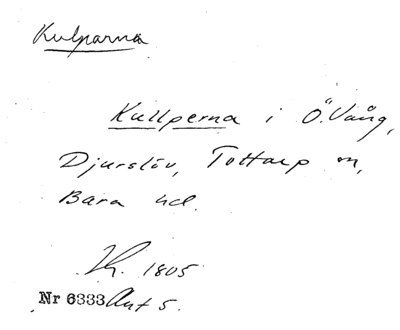 Kulparna
Kullperna i Ö. Vång,
Djurslöv, Tottarp sn,
Bara hd.
1805
Nr 6333 Akt 5.